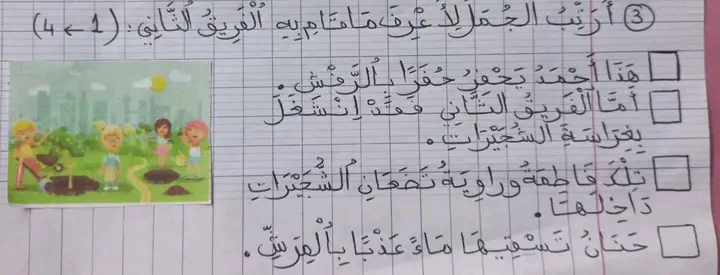 ③ أُرَتِّبُ الْجُمَلَ لِأَعْرِفَ مَا قَامَ بِهِ الْفَرِيقُ الثَّانِي: (1 ← 4)
هَذَا أَحْمَدُ يَحْفِرُ حُفَرًا بِالرَّفْشِ.
أَمَّا الْفَرِيقُ الثَّانِي فَقَدْ اِنْشَغَلَ
بِغِرَاسَةِ الشُّجَيْرَاتِ.
تِلْكَ فَاطِمَةُ وراوِيَةُ تَضَعَانِ الشُّجَيْرَاتِ
دَاخِلَهَا.
حَنَانُ تَسْقِيهَا مَاءً عَذْبًا بِالْمِرَشِّ.